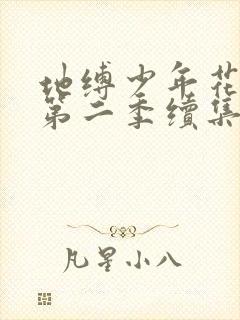 地缚少年花
第二季续集
凡星小八